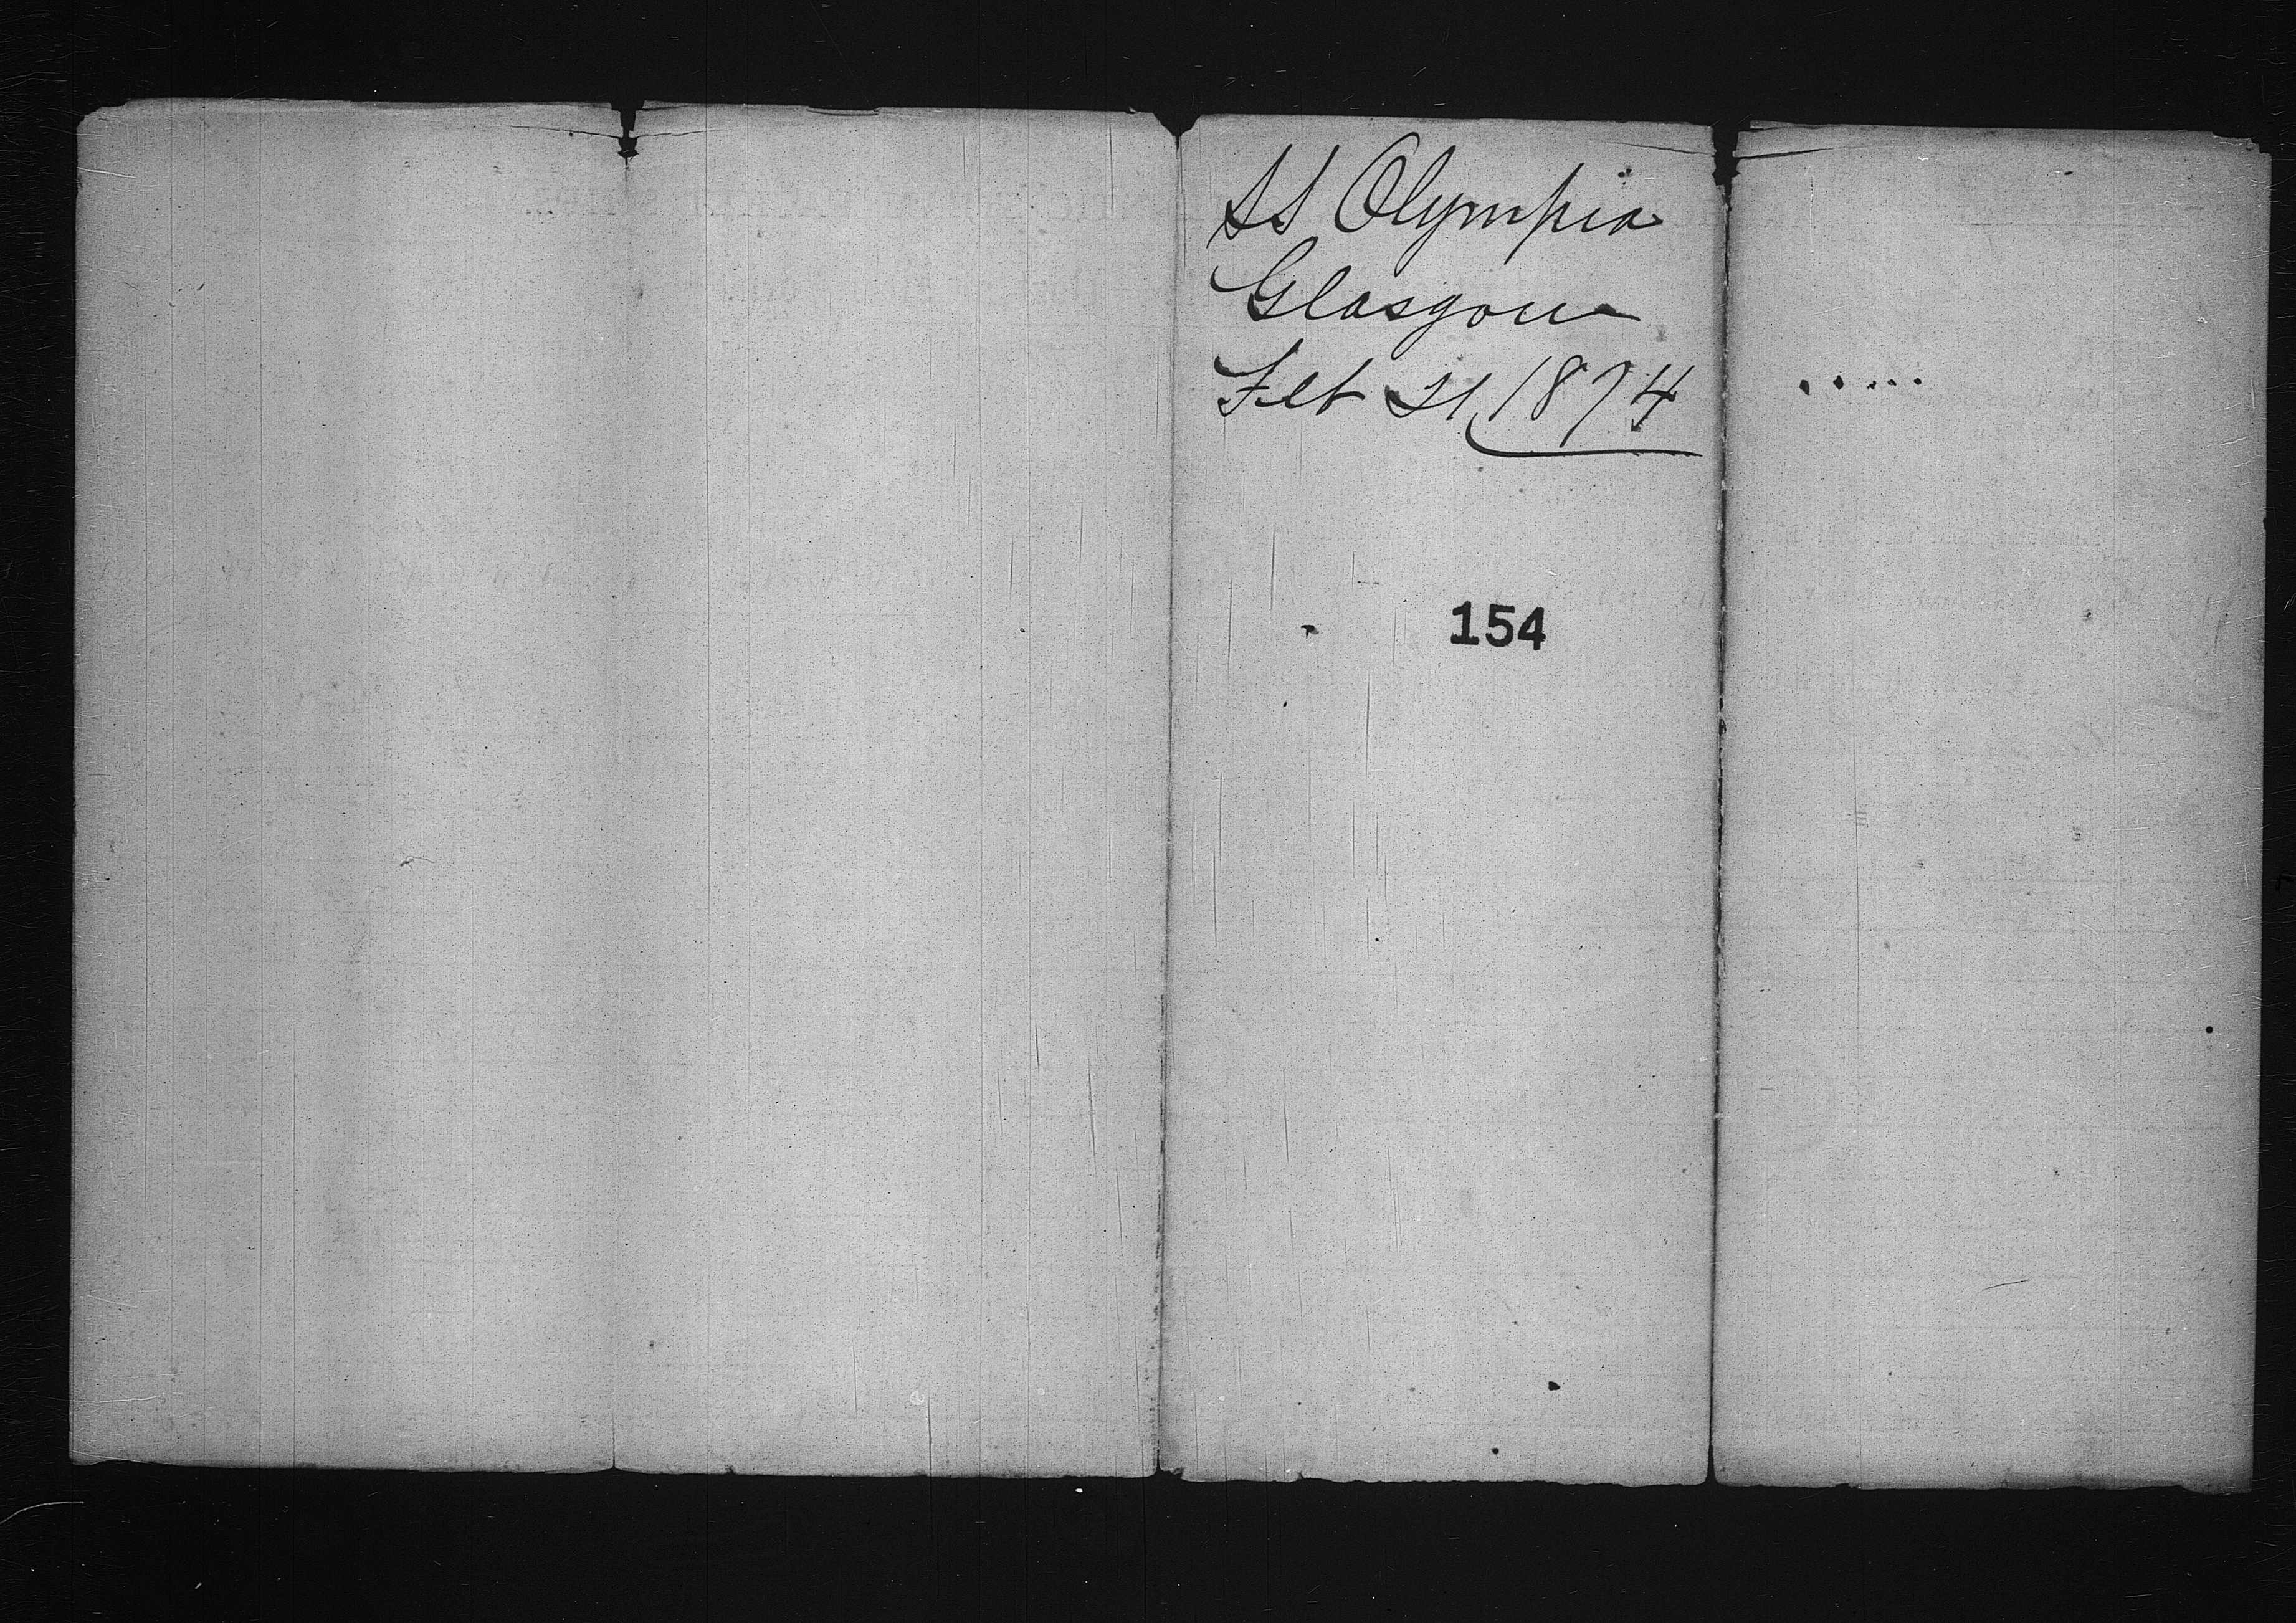 SS Olympia
Glasgow
Feb 21 1874
154